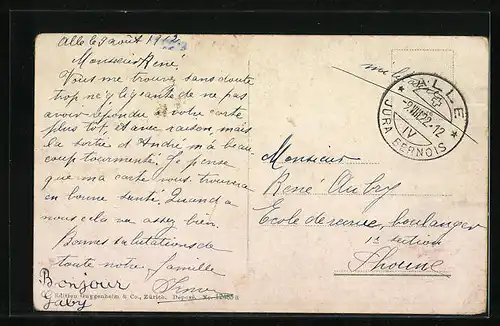 Alle le 3 août 1912
Monsieur René
Vous me trouvez sans doute
trop négligeante de ne pas
avoir répondu a votre carte
plus tôt, et avec raison, mais
la sortie d'André m'a beau
coup tourmenté. Je pense
que ma carte vous trouvera
en bonne santé, Quand a
nous cela va assez bien.
Bonnes salutations de
toute notre famille
Bonjour
Gaby
Edition Guggenheim & Co., Zürich. Dépose. Nr.
ALLE
-2.VIII.22.-12
IV
JURA BERNOIS
Monsieur
René Aubry
Ecole de recrue, boulanger
1e section
Thoune